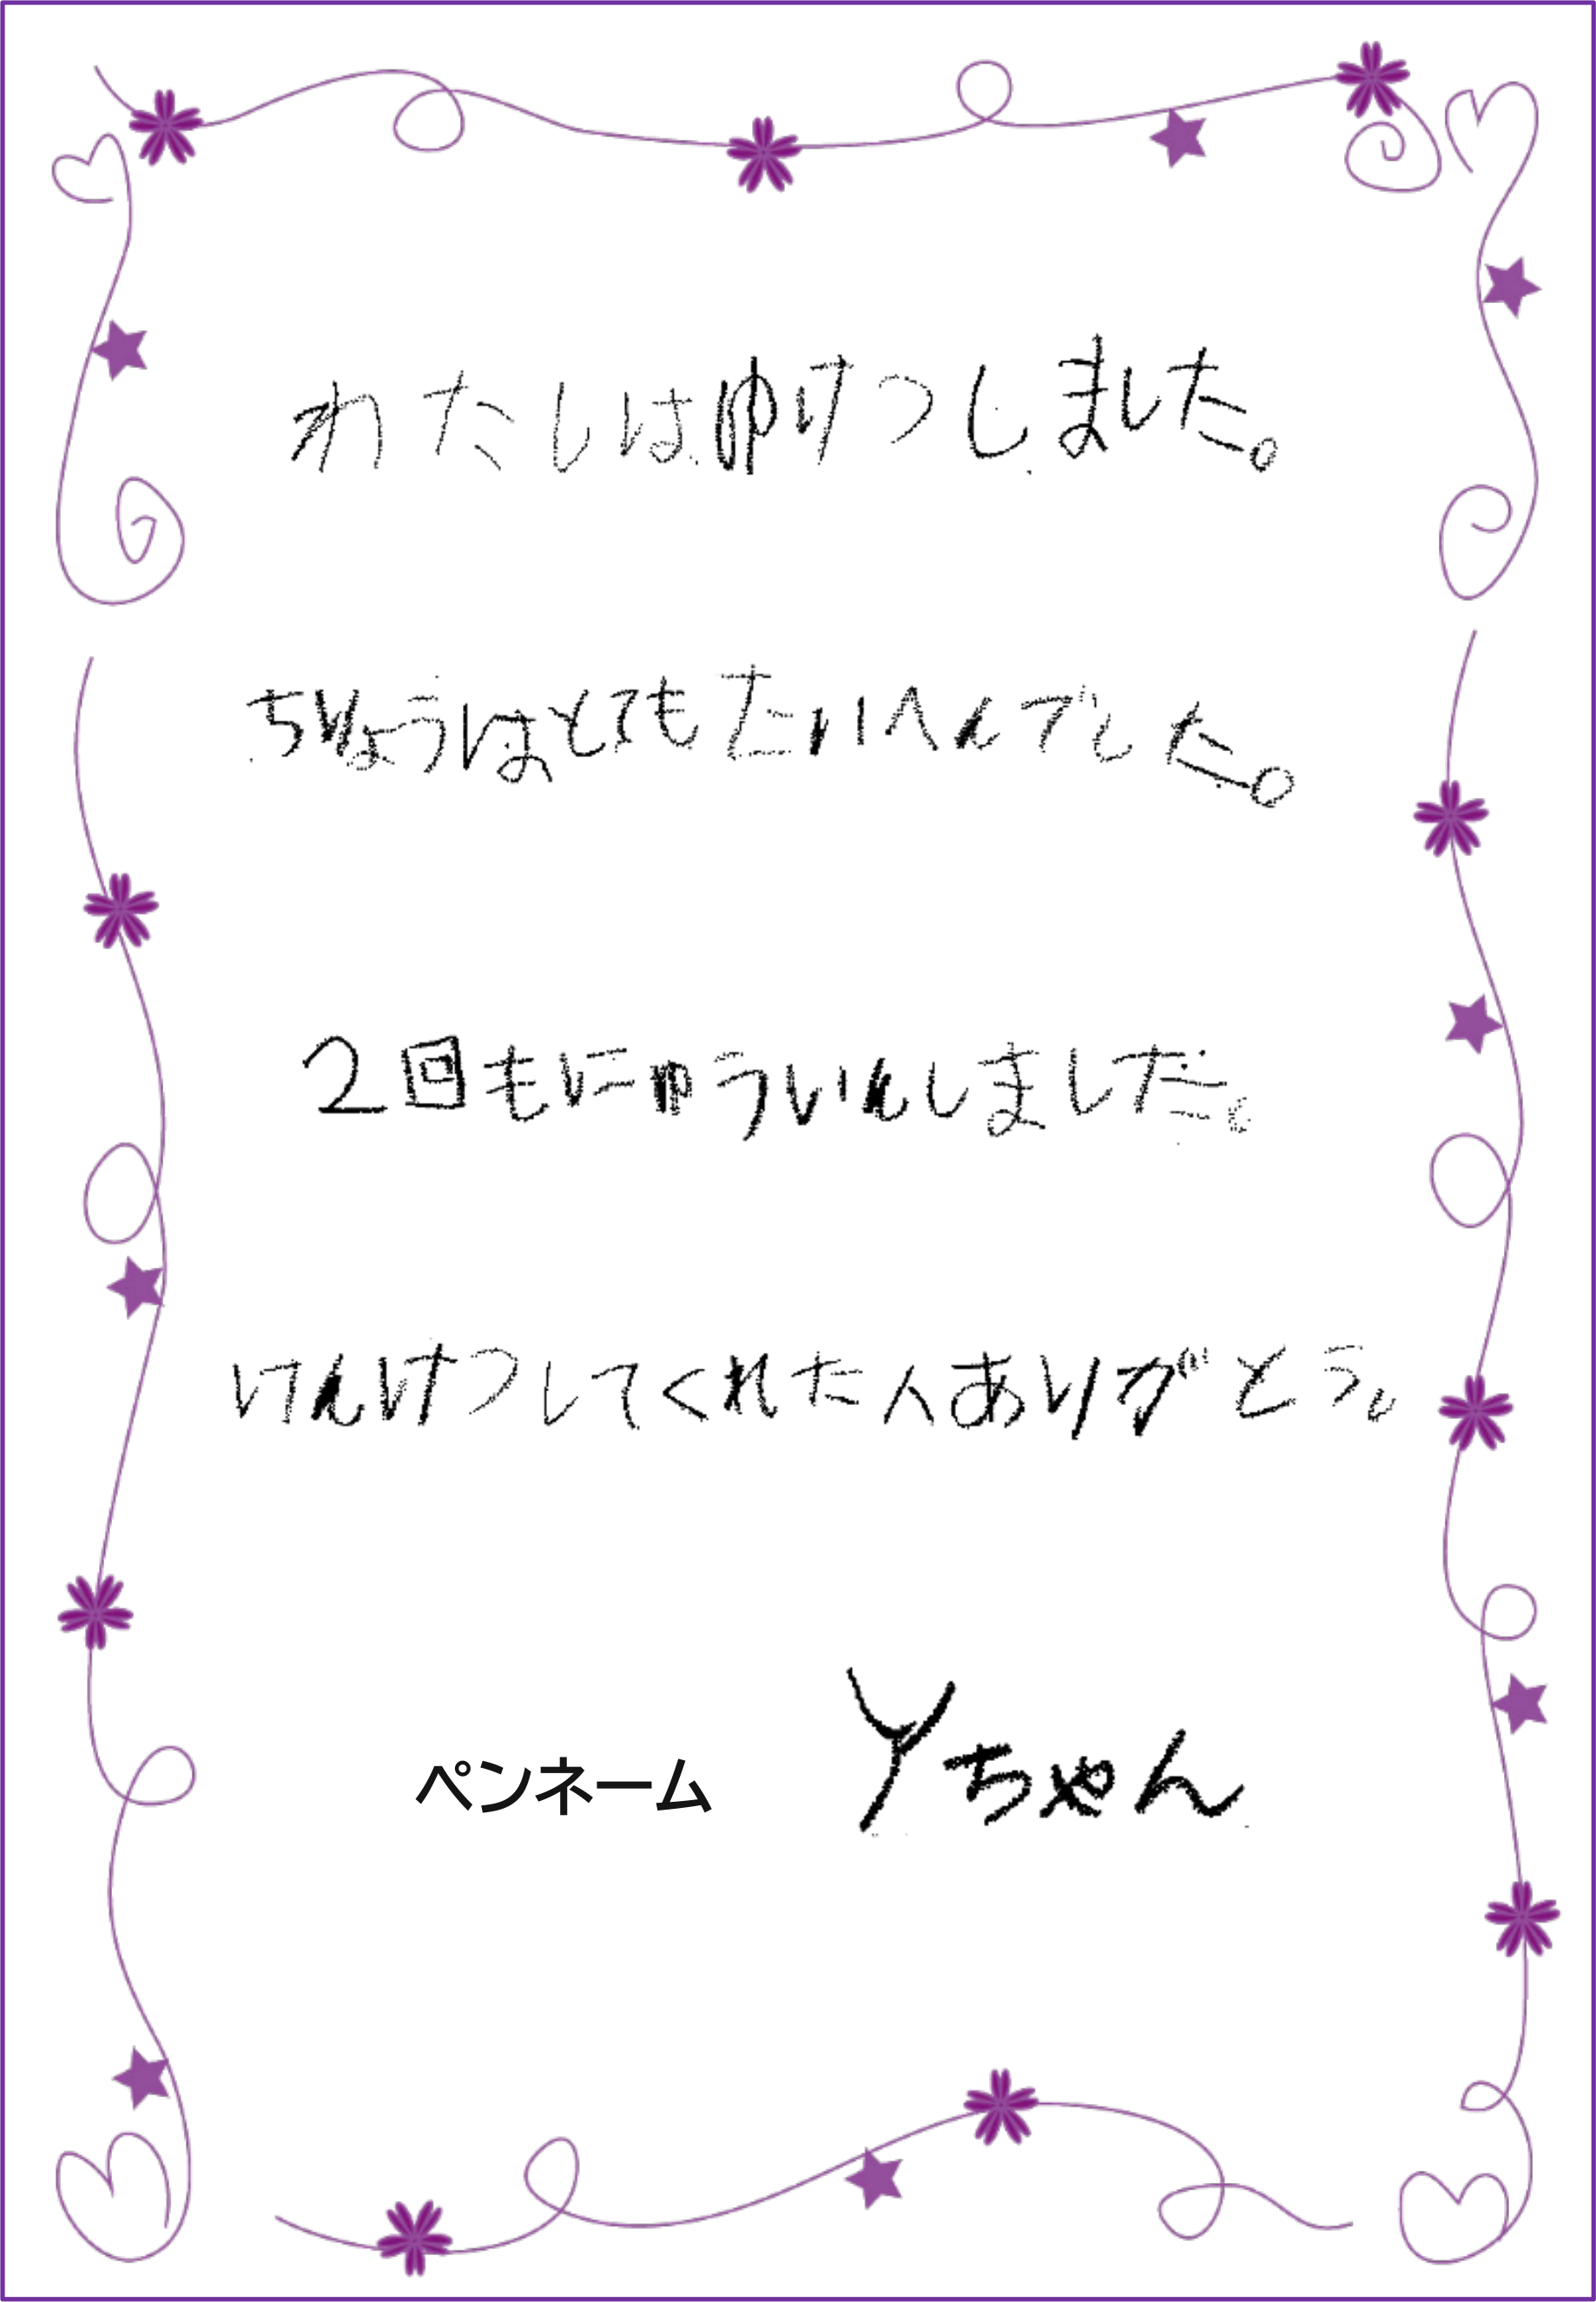 わたしはゆけつしました。
ちりょうはとてもたいへんでした。
2回もにゅういんしました。
けんけつしてくれた人ありがとう。
ペンネーム Yちゃん